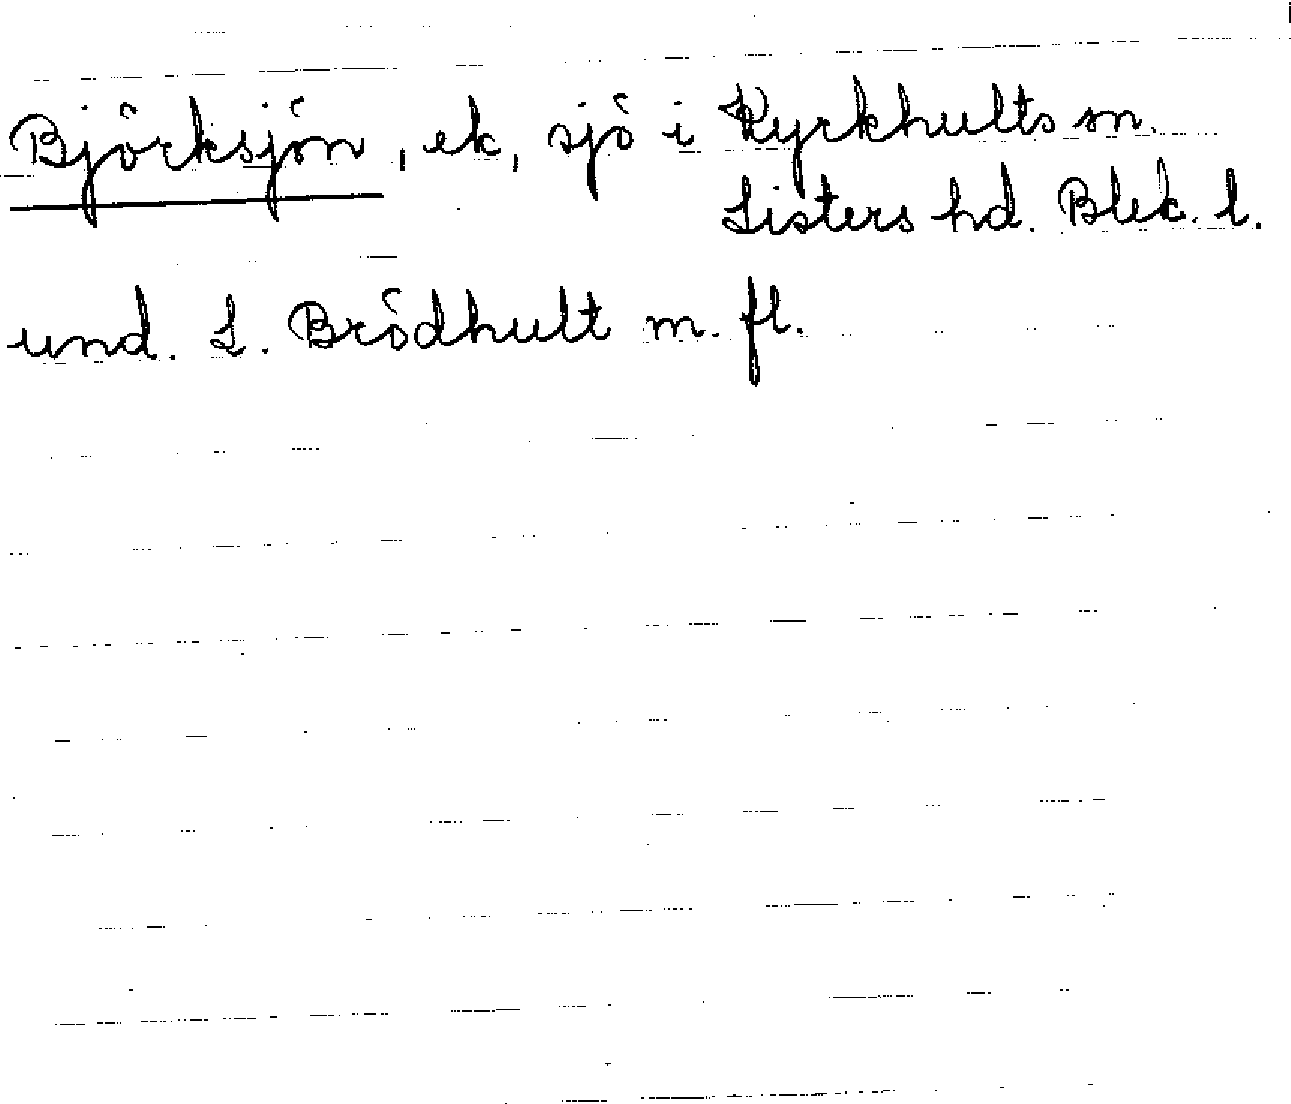 Björksjön, ek, sjö i Kyrkhults sn.
Listers hd. Blek. l.
und. L. Brödhult m. fl.